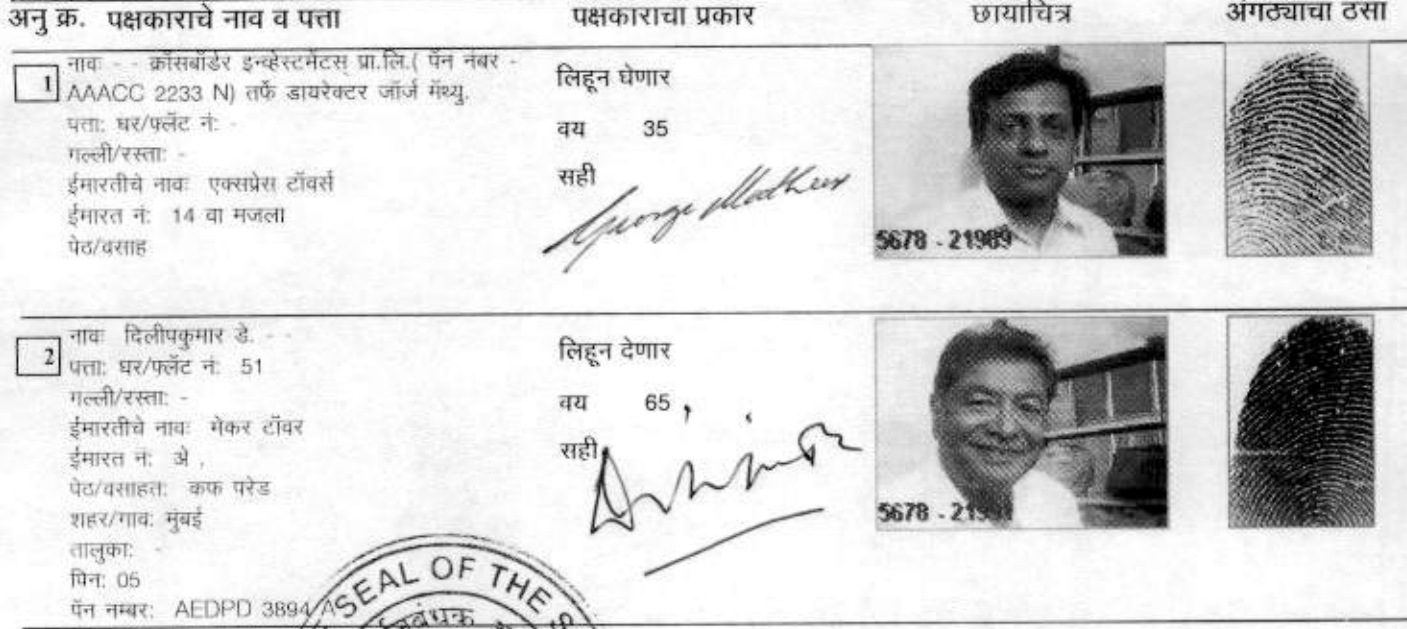 अनु क्र. पक्षकाराचे नाव व पत्ता पक्षकाराचा प्रकार छायाचित्र अंगठ्याचा ठसा
1
नावः - - क्रॉसबॉर्डर इन्व्हेस्टमेंटस् प्रा.लि.( पॅन नंबर -
AAACC 2233 N) तर्फे डायरेक्टर जॉर्ज मॅथ्यु.
पत्ता: घर/फ्लॅट नं: -
गल्ली/रस्ता: -
ईमारतीचे नावः एक्सप्रेस टॉवर्स
ईमारत नं: 14 वा मजला
पेठ/वसाह
लिहून घेणार
वय 35
सही
George Mathew
5678 - 21989
2
नावः दिलीपकुमार डे. - -
पत्ता: घर/फ्लॅट नं: 51
गल्ली/रस्ता: -
ईमारतीचे नावः मेकर टॉवर
ईमारत नं: ॲ ,
पेठ/वसाहतः कफ परेड
शहर/गाव: मुंबई
तालुका: -
पिन: 05
पॅन नम्बर: AEDPD 3894 A
लिहून देणार
वय 65
सही
5678 -
SEAL OF THE S